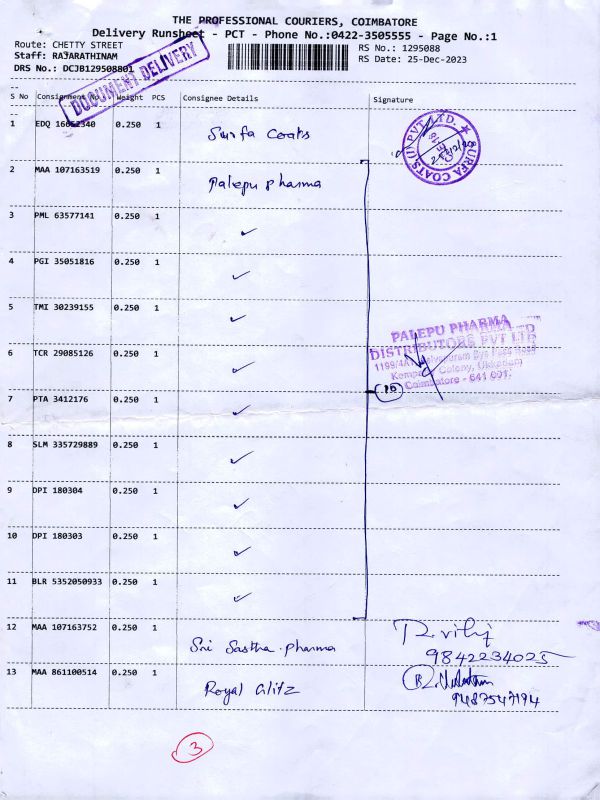 THE PROFESSIONAL COURIERS, COIMBATORE
Delivery Runsheet - PCT - Phone No.:0422-3505555 - Page No.:1
Route: CHETTY STREET
Staff: RAJARATHINAM
DRS No.: DCJB129508801
RS No.: 1295088
RS Date: 25-Dec-2023
DOCUMENT DELIVERY
S No Consignment No Weight PCS Consignee Details Signature
1 EDQ 16652340 0.250 1 Surfa Coats
SURFA COATS (I) PVT. LTD.
2 MAA 107163519 0.250 1 Palepu Pharma
3 PML 63577141 0.250 1 ✓
4 PGI 35051816 0.250 1 ✓
5 TMI 30239155 0.250 1 ✓
PALEPU PHARMA
DISTRIBUTORS PVT LTD
6 TCR 29085126 0.250 1 ✓
Colony, Ukkadam
Coimbatore - 641 001.
10
7 PTA 3412176 0.250 1 ✓
8 SLM 335729889 0.250 1 ✓
9 DPI 180304 0.250 1 ✓
10 DPI 180303 0.250 1 ✓
11 BLR 5352050933 0.250 1 ✓
12 MAA 107163752 0.250 1 Sri Sastha Pharma
9842234025
13 MAA 861100514 0.250 1 Royal Glitz
9487547194
3